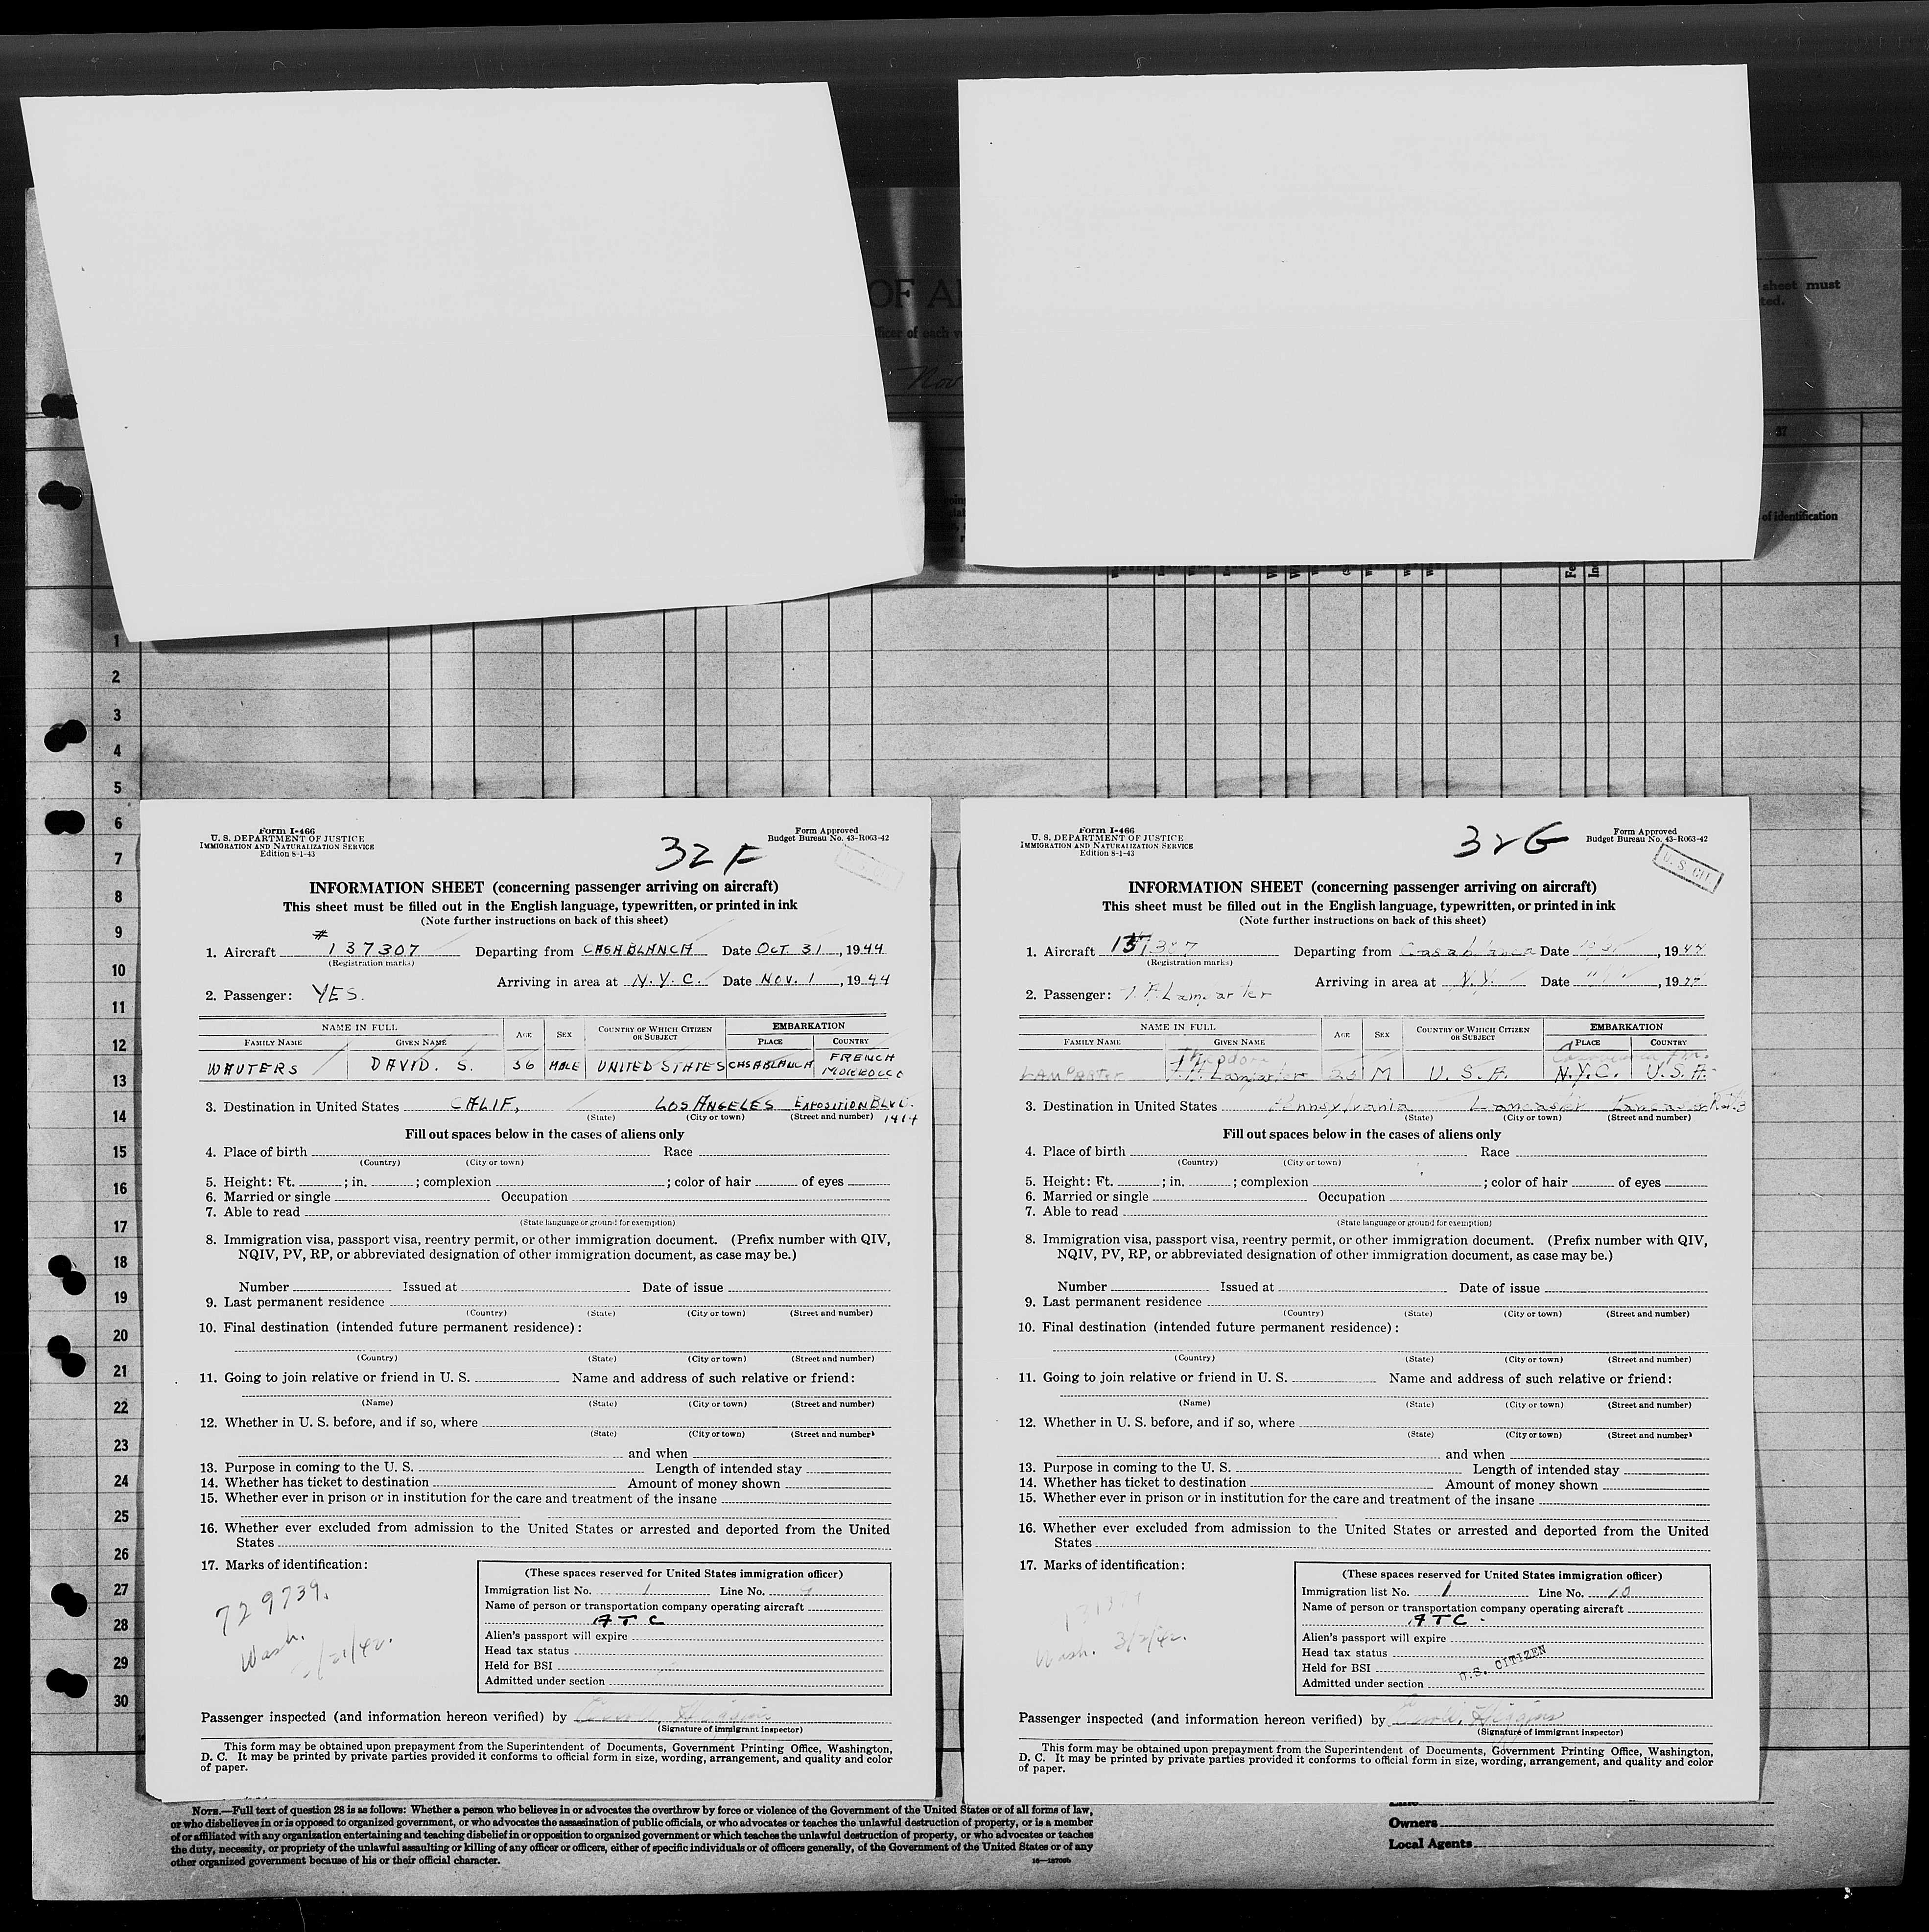 OF
sheet must
ted.
fficer of each
Nov
37
of identification
1
2
3
4
5
6
7
8
9
10
11
12
13
14
15
16
17
18
19
20
21
22
23
24
25
26
27
28
29
30
Form I-466
U. S. DEPARTMENT OF JUSTICE
IMMIGRATION AND NATURALIZATION SERVICE
Edition 8-1-43
32F
Form Approved
Budget Bureau No. 43-R063-42
INFORMATION SHEET (concerning passenger arriving on aircraft)
This sheet must be filled out in the English language, typewritten, or printed in ink
(Note further instructions on back of this sheet)
1. Aircraft # 137307 Departing from CASABLANCA Date OCT. 31, 1944
(Registration marks)
Arriving in area at N.Y.C. Date NOV. 1, 1944
2. Passenger: YES.
NAME IN FULL AGE SEX COUNTRY OF WHICH CITIZEN OR SUBJECT EMBARKATION
FAMILY NAME GIVEN NAME PLACE COUNTRY
WAUTERS DAVID. S. 36 MALE UNITED STATES CASABLANCA FRENCH MORROCCO
3. Destination in United States CALIF, LOS ANGELES EXPOSITION BLVD. 1414
(State) (City or town) (Street and number)
Fill out spaces below in the cases of aliens only
4. Place of birth Race
(Country) (City or town)
5. Height: Ft. ; in. ; complexion ; color of hair of eyes
6. Married or single Occupation
7. Able to read
(State language or ground for exemption)
8. Immigration visa, passport visa, reentry permit, or other immigration document. (Prefix number with QIV,
NQIV, PV, RP, or abbreviated designation of other immigration document, as case may be.)
Number Issued at Date of issue
9. Last permanent residence
(Country) (State) (City or town) (Street and number)
10. Final destination (intended future permanent residence):
(Country) (State) (City or town) (Street and number)
11. Going to join relative or friend in U. S. Name and address of such relative or friend:
(Name) (State) (City or town) (Street and number)
12. Whether in U. S. before, and if so, where
(State) (City or town) (Street and number)
and when
13. Purpose in coming to the U. S. Length of intended stay
14. Whether has ticket to destination Amount of money shown
15. Whether ever in prison or in institution for the care and treatment of the insane
16. Whether ever excluded from admission to the United States or arrested and deported from the United
States
17. Marks of identification:
729739.
Wash.
(These spaces reserved for United States immigration officer)
Immigration list No. 1 Line No.
Name of person or transportation company operating aircraft
ATC
Alien's passport will expire
Head tax status
Held for BSI
Admitted under section
Passenger inspected (and information hereon verified) by
(Signature of immigrant inspector)
This form may be obtained upon prepayment from the Superintendent of Documents, Government Printing Office, Washington,
D. C. It may be printed by private parties provided it conforms to official form in size, wording, arrangement, and quality and color
of paper.
Form I-466
U. S. DEPARTMENT OF JUSTICE
IMMIGRATION AND NATURALIZATION SERVICE
Edition 8-1-43
32G
Form Approved
Budget Bureau No. 43-R063-42
U. S. CIT
INFORMATION SHEET (concerning passenger arriving on aircraft)
This sheet must be filled out in the English language, typewritten, or printed in ink
(Note further instructions on back of this sheet)
1. Aircraft Departing from Casablanca Date , 1944
(Registration marks)
Arriving in area at N.Y. Date , 19
2. Passenger: Lamparter
NAME IN FULL AGE SEX COUNTRY OF WHICH CITIZEN OR SUBJECT EMBARKATION
FAMILY NAME GIVEN NAME PLACE COUNTRY
LAMPARTER Theodore Lamparter M U. S. A. N.Y.C. U.S.A.
3. Destination in United States Pennsylvania Lancaster Lancaster
(State) (City or town) (Street and number)
Fill out spaces below in the cases of aliens only
4. Place of birth Race
(Country) (City or town)
5. Height: Ft. ; in. ; complexion ; color of hair of eyes
6. Married or single Occupation
7. Able to read
(State language or ground for exemption)
8. Immigration visa, passport visa, reentry permit, or other immigration document. (Prefix number with QIV,
NQIV, PV, RP, or abbreviated designation of other immigration document, as case may be.)
Number Issued at Date of issue
9. Last permanent residence
(Country) (State) (City or town) (Street and number)
10. Final destination (intended future permanent residence):
(Country) (State) (City or town) (Street and number)
11. Going to join relative or friend in U. S. Name and address of such relative or friend:
(Name) (State) (City or town) (Street and number)
12. Whether in U. S. before, and if so, where
(State) (City or town) (Street and number)
and when
13. Purpose in coming to the U. S. Length of intended stay
14. Whether has ticket to destination Amount of money shown
15. Whether ever in prison or in institution for the care and treatment of the insane
16. Whether ever excluded from admission to the United States or arrested and deported from the United
States
17. Marks of identification:
Wash. 3/2/42.
(These spaces reserved for United States immigration officer)
Immigration list No. 1 Line No. 10
Name of person or transportation company operating aircraft
ATC
Alien's passport will expire
Head tax status
Held for BSI
U.S. CITIZEN
Admitted under section
Passenger inspected (and information hereon verified) by Higgins
(Signature of immigrant inspector)
This form may be obtained upon prepayment from the Superintendent of Documents, Government Printing Office, Washington,
D. C. It may be printed by private parties provided it conforms to official form in size, wording, arrangement, and quality and color
of paper.
NOTE.—Full text of question 28 is as follows: Whether a person who believes in or advocates the overthrow by force or violence of the Government of the United States or of all forms of law,
or who disbelieves in or is opposed to organized government, or who advocates the assassination of public officials, or who advocates or teaches the unlawful destruction of property, or is a member
of or affiliated with any organization entertaining and teaching disbelief in or opposition to organized government or which teaches the unlawful destruction of property, or who advocates or teaches
the duty, necessity, or propriety of the unlawful assaulting or killing of any officer or officers, either of specific individuals or of officers generally, of the Government of the United States or of any
other organized government because of his or their official character.
Owners
Local Agents